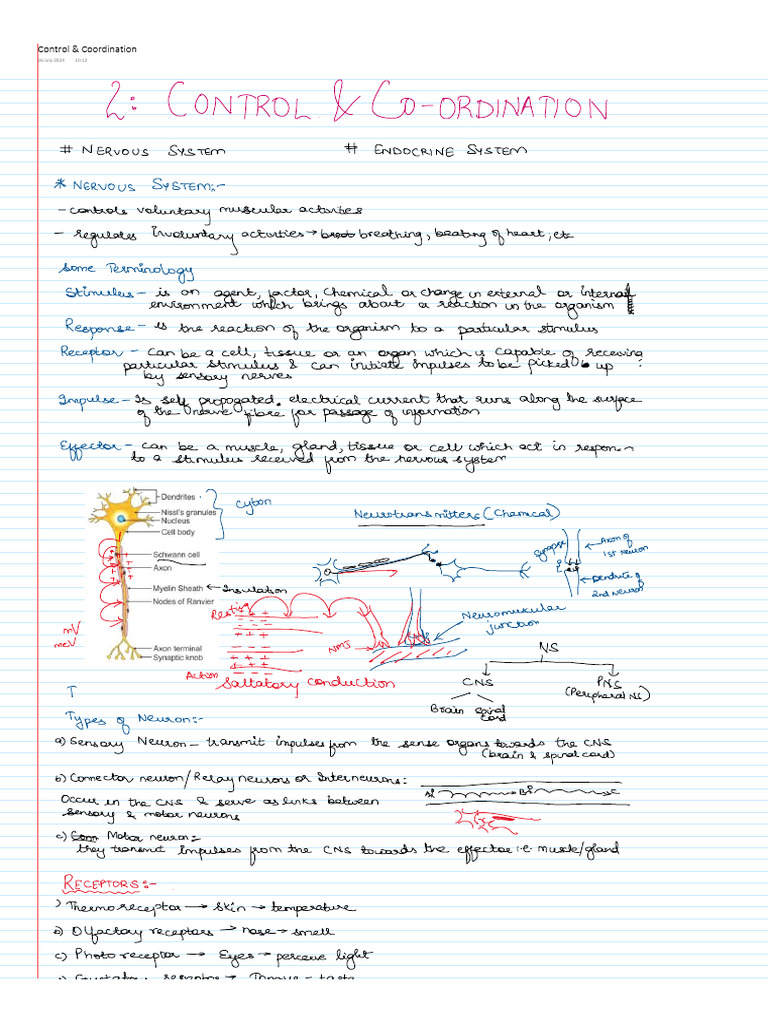 Control & Coordination
26 July 2024 10:12
2: CONTROL & CO-ORDINATION
# NERVOUS SYSTEM # ENDOCRINE SYSTEM
* NERVOUS SYSTEM:-
- controls voluntary muscular activities
- regulates Involuntary activities → breathing, beating of heart, etc
Some Terminology
Stimulus - is an agent, factor, chemical or change in external or internal
environment which brings about a reaction in the organism
Response - is the reaction of the organism to a particular stimulus
Receptor - can be a cell, tissue or an organ which is capable of receiving
particular stimulus & can initiate impulses to be picked up
by sensory nerves
Impulse - Is self propogated. electrical current that runs along the surface
of the nerve fibre for passage of information
Effector - can be a muscle, gland, tissue or cell which act in respon
to a stimulus received from the nervous system
Dendrites
Nissl's granules
Nucleus
Cell body
Cyton
Schwann cell
Axon
Myelin Sheath ← Insulation
Nodes of Ranvier
Axon terminal
Synaptic knob
mV
meV
Neurotransmitters (Chemical)
Synapse
Axon of
1st Neuron
Dendrite of
2nd Neuron
Resting
Action
Saltatory conduction
NMJ
Neuromuscular
junction
NS
CNS PNS
(Peripheral NS)
Brain spinal
cord
T
Types of Neuron:-
a) Sensory Neuron - transmit impulses from the sense organs towards the CNS
(brain & spinal cord)
b) Connector neuron/Relay neurons or Interneurons:
Occur in the CNS & serve as links between
sensory & motor neurons
c) Com Motor neuron:-
they transmit impulses from the CNS towards the effector i.e. muscle/gland
RECEPTORS:-
) Thermoreceptor → Skin → temperature
b) Olfactory receptors → nose → smell
c) Photoreceptor → Eyes → perceive light